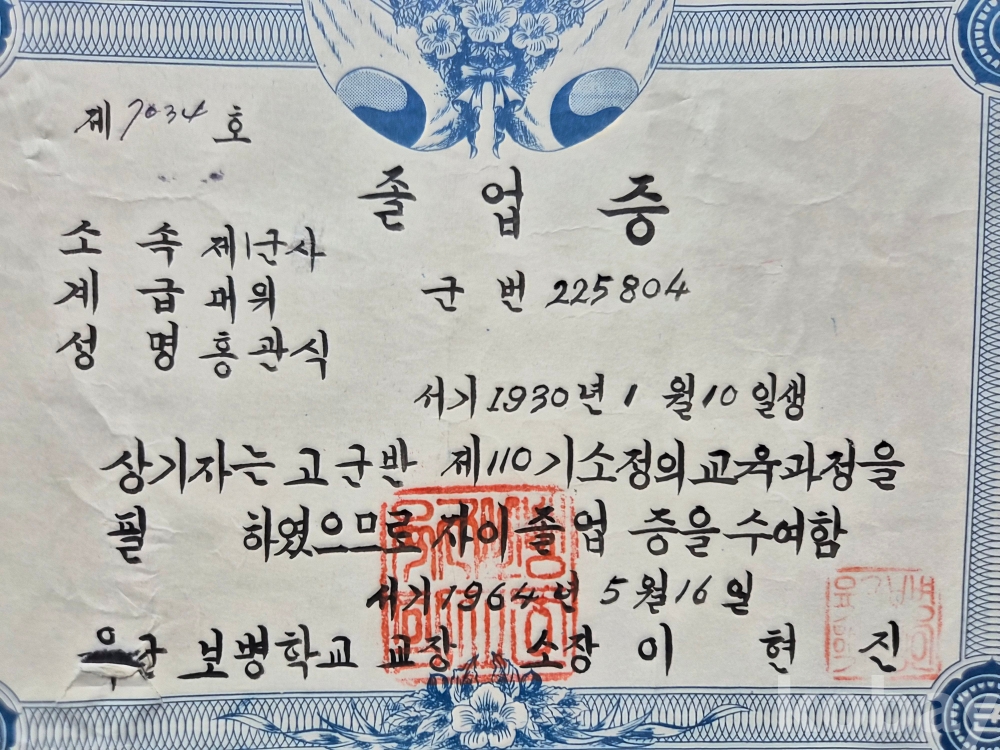 제 7034 호
졸업증
소속 제1군사
계급 대위 군번 225804
성명 홍관식
서기 1930년 1월 10일생
상기자는 고군반 제110기소정의교육과정을
필 하였으므로 자이 졸업 증을 수여함
서기 1964년 5월 16일
육군 보병학교 교장 소장 이현진